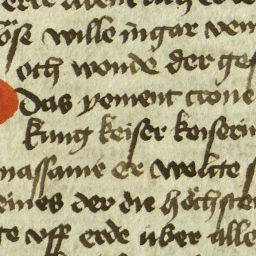 wille in gar ven
och wonde der ges
Das yement crone
kung keiser keiserin
massame er wolte s
eines der die höchste
vff erde uber alle